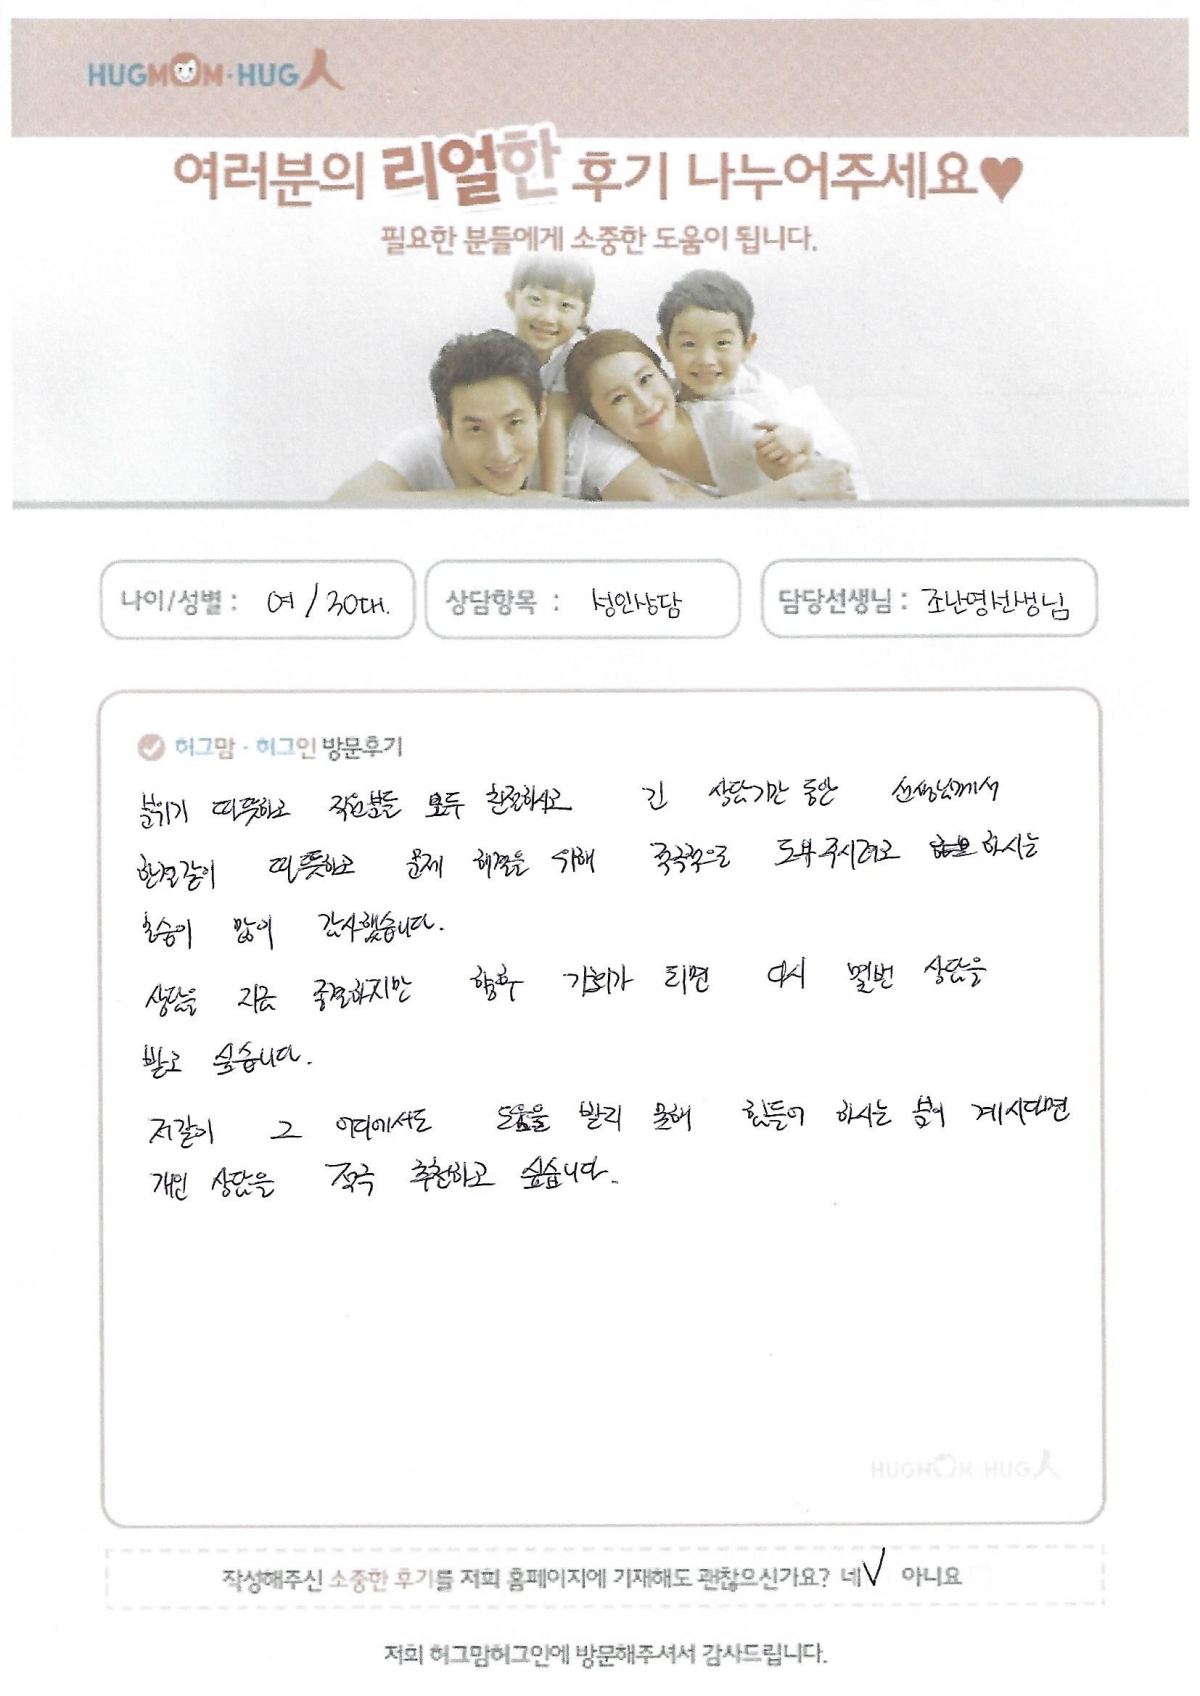 HUGMOM·HUG人
여러분의 리얼한 후기 나누어주세요♥
필요한 분들에게 소중한 도움이 됩니다.
나이/성별 : 여 / 30대.
상담항목 : 성인상담
담당선생님 : 조난영선생님
허그맘 · 허그인 방문후기
분위기 따뜻하고 직원분들 모두 친절하시고 긴 상담기간 동안 선생님께서
한결같이 따뜻하고 문제 해결을 위해 적극적으로 도와주시려고 하시는
모습이 많이 감사했습니다.
상담을 지금 종결하지만 향후 기회가 되면 다시 몇번 상담을
받고 싶습니다.
저같이 그 어디에서도 도움을 받지 못해 힘들어 하시는 분이 계시다면
개인 상담을 적극 추천하고 싶습니다.
HUGMOM HUG人
작성해주신 소중한 후기를 저희 홈페이지에 기재해도 괜찮으신가요? 네√ 아니요
저희 허그맘허그인에 방문해주셔서 감사드립니다.